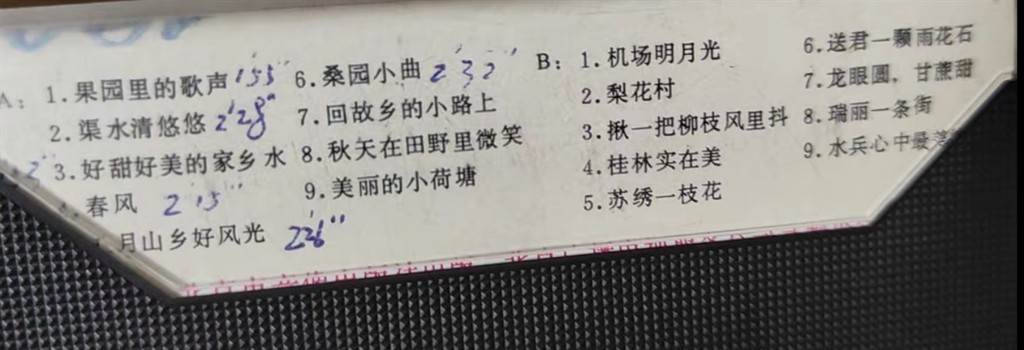 A: 1.果园里的歌声 1'55"
2.渠水清悠悠 2'28"
3.好甜好美的家乡水
春风 2'15"
月山乡好风光 2'26"
6.桑园小曲 2'32"
7.回故乡的小路上
8.秋天在田野里微笑
9.美丽的小荷塘
B: 1.机场明月光
2.梨花村
3.揪一把柳枝风里抖
4.桂林实在美
5.苏绣一枝花
6.送君一颗雨花石
7.龙眼圆，甘蔗甜
8.瑞丽一条街
9.水兵心中最美